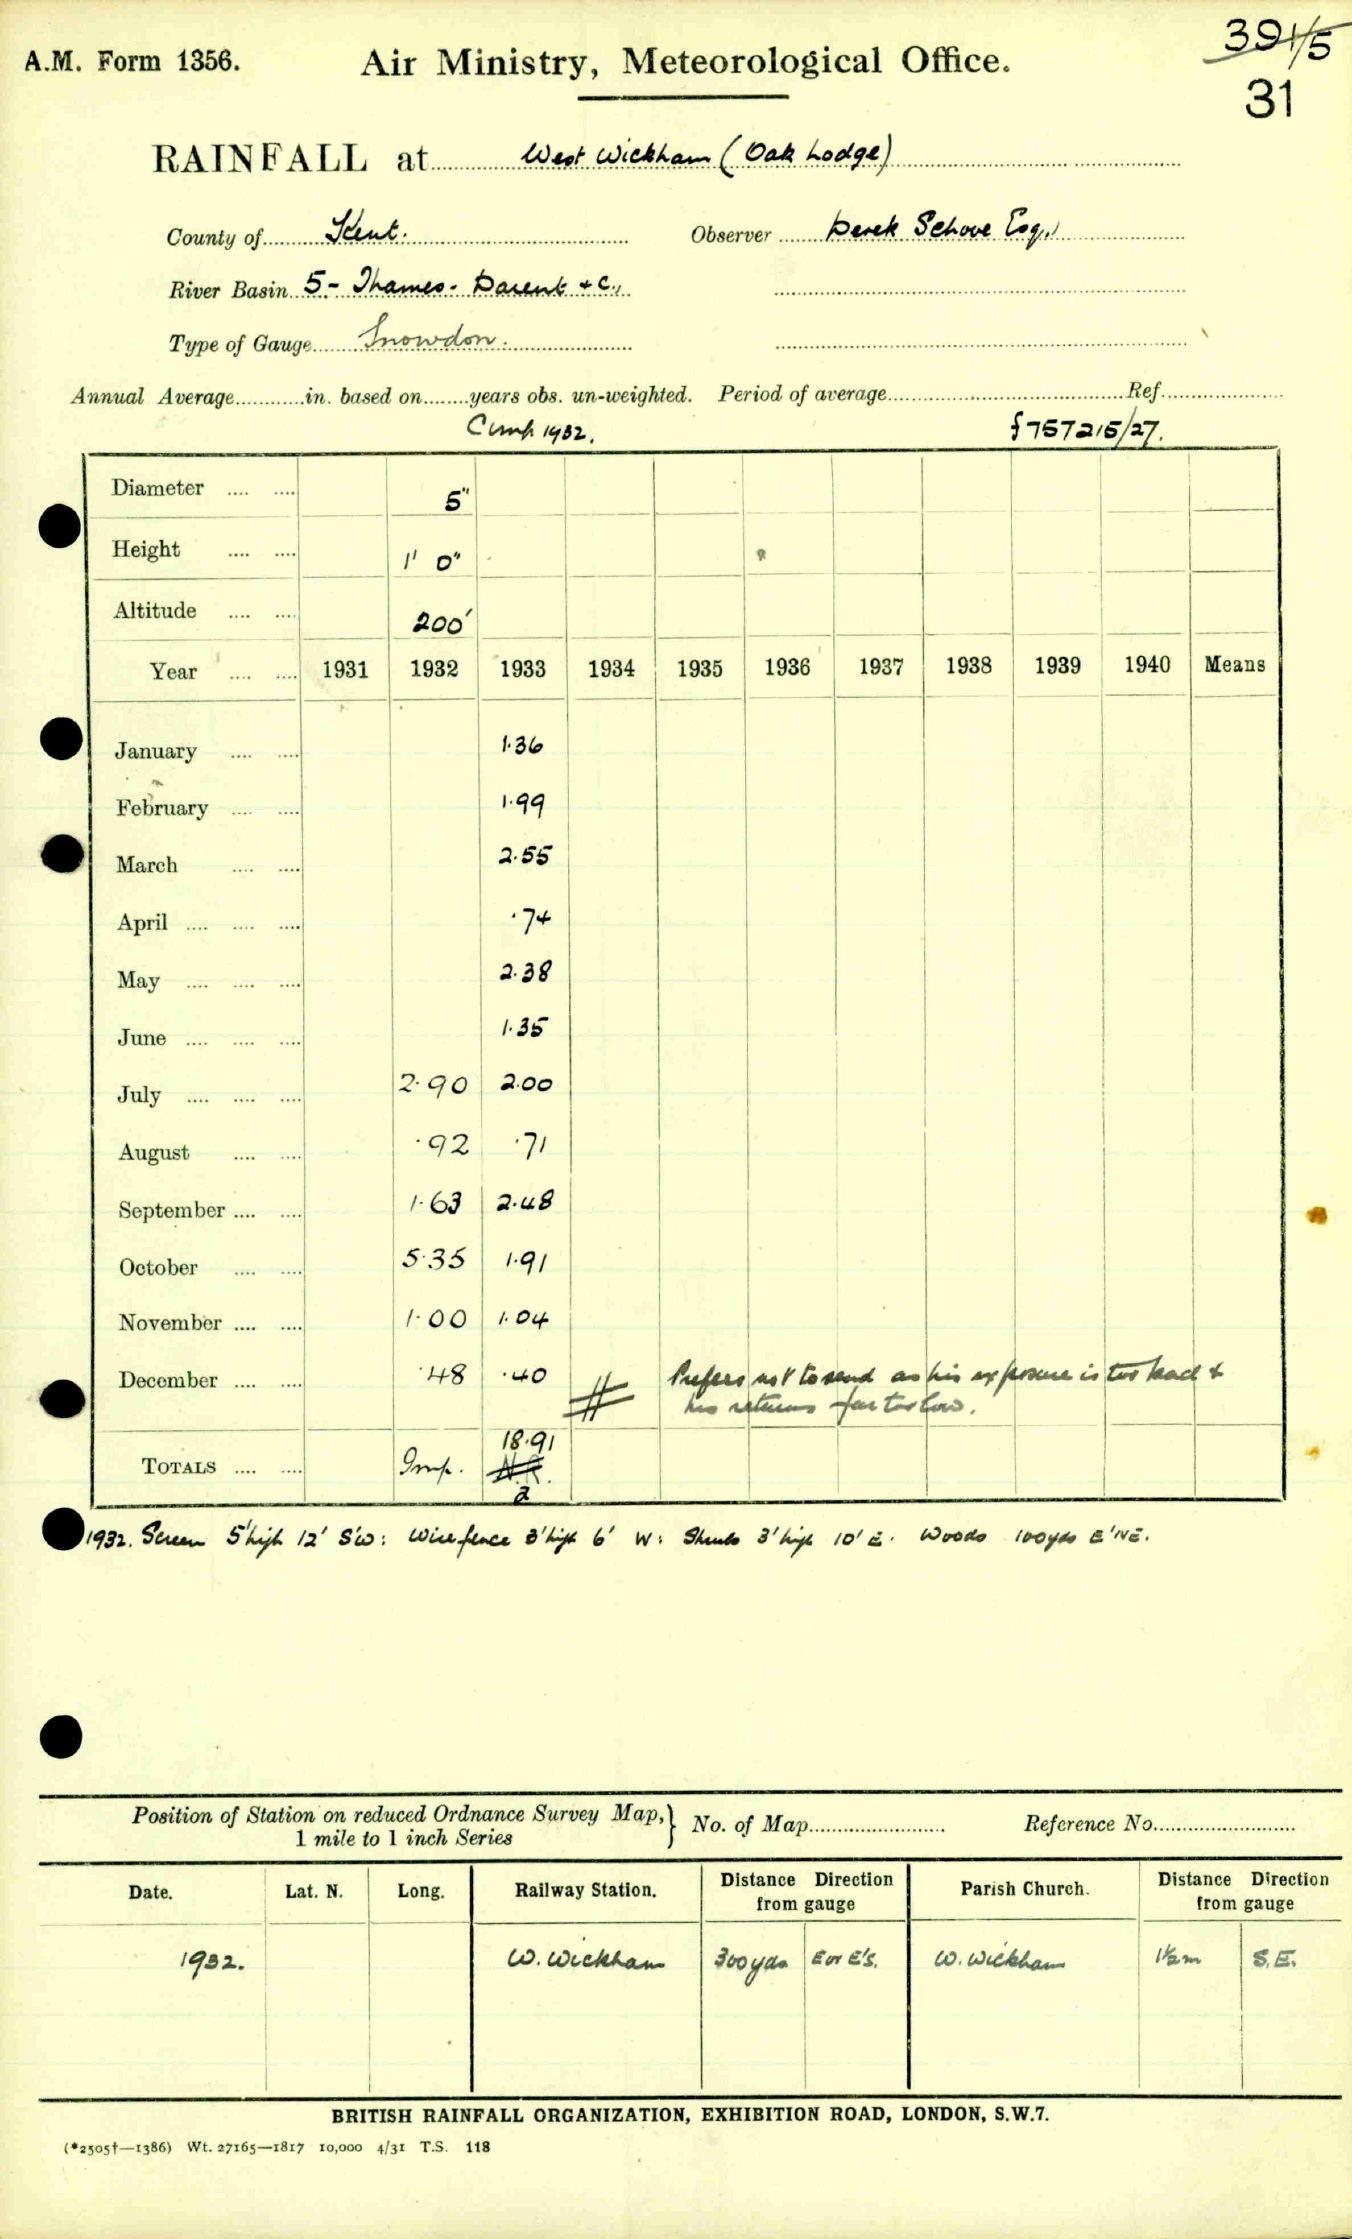 A.M. Form 1356.
Air Ministry, Meteorological Office.
391/5
31
RAINFALL at West Wickham (Oak Lodge)
County of Kent. Observer Derek Schove Esq.,
River Basin 5 - Thames - Darent + C.,
Type of Gauge Snowdon.
Annual Average in. based on years obs. un-weighted. Period of average Ref.
1932. 757215/27.
Diameter 5"
Height 1' 0"
Altitude 200'
Year 1931 1932 1933 1934 1935 1936 1937 1938 1939 1940 Means
January 1.36
February 1.99
March 2.55
April .74
May 2.38
June 1.35
July 2.90 2.00
August .92 .71
September 1.63 2.48
October 5.35 1.91
November 1.00 1.04
December .48 .40 Prefers not to send as his exposure is too bad &
his returns far too low.
18.91
TOTALS Imp. N.R.
2
1932. Screen 5' high 12' S'W: Wire fence 3' high 6' W: Shrubs 3' high 10' E. Woods 100yds E'NE.
Position of Station on reduced Ordnance Survey Map, No. of Map Reference No.
1 mile to 1 inch Series
Date. Lat. N. Long. Railway Station. Distance Direction from gauge Parish Church. Distance Direction from gauge
1932. W. Wickham 300yds E or E'S. W. Wickham 1½m S.E.
BRITISH RAINFALL ORGANIZATION, EXHIBITION ROAD, LONDON, S.W.7.
(*2505†—1386) Wt. 27165—1817 10,000 4/31 T.S. 118